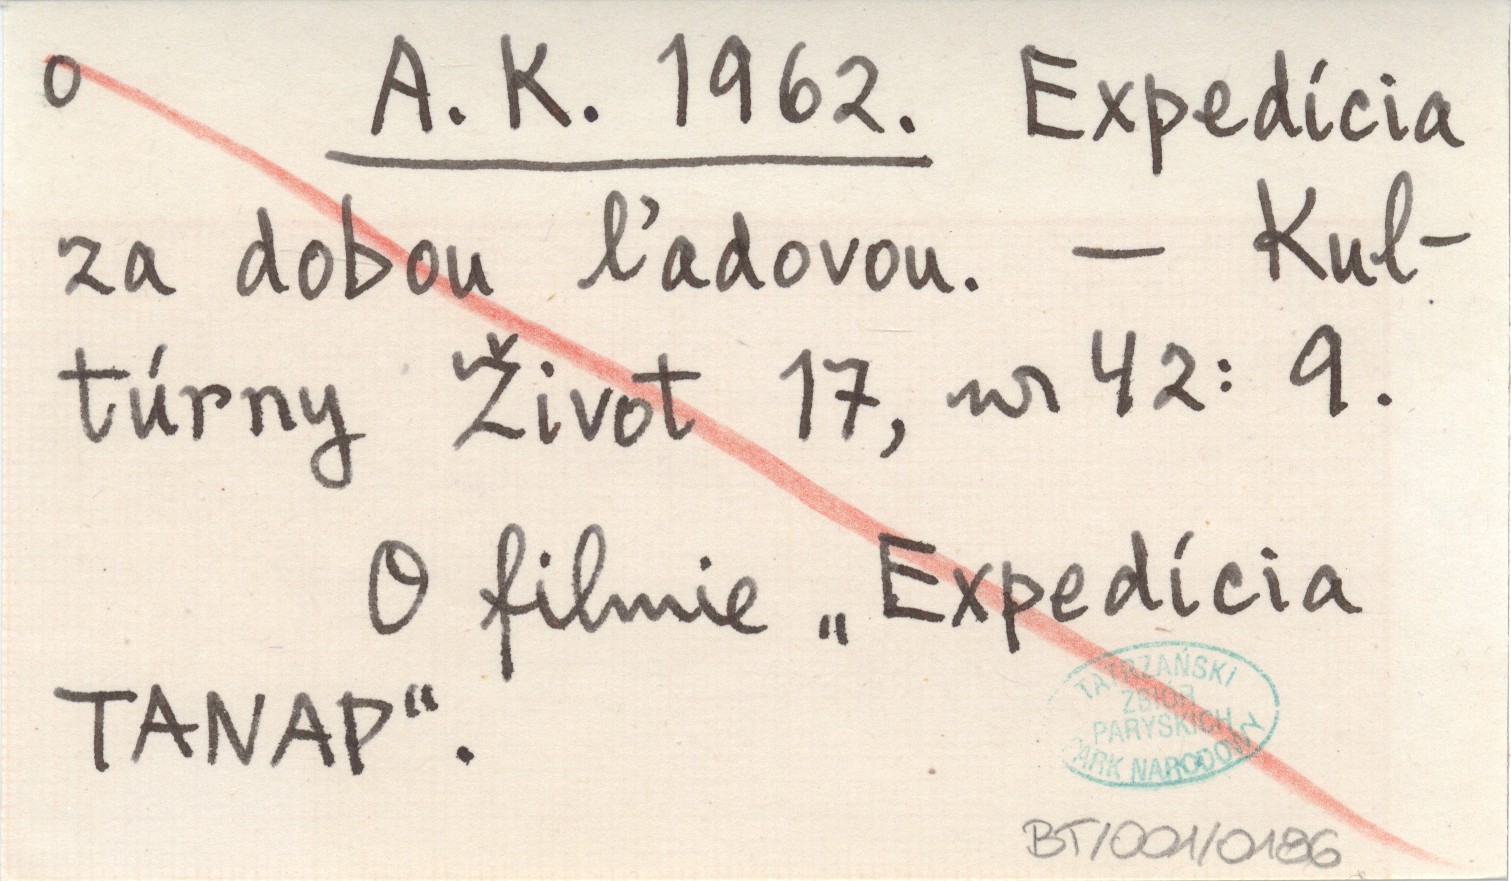 o A. K. 1962. Expedícia
za dobou ľadovou. — Kul-
túrny Život 17, nr 42: 9.
O filmie „Expedícia
TANAP“.
TATRZAŃSKI
ZBIÓR
PARYSKICH
PARK NARODOWY
BT/001/0186